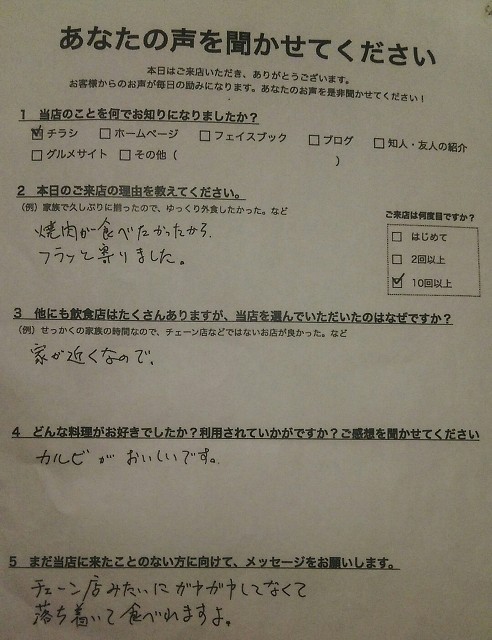 あなたの声を聞かせてください
本日はご来店いただき、ありがとうございます。
お客様からのお声が毎日の励みになります。あなたのお声を是非聞かせてください！
1 当店のことを何でお知りになりましたか？
☑チラシ □ホームページ □フェイスブック □ブログ □知人・友人の紹介
□グルメサイト □その他（ ）
2 本日のご来店の理由を教えてください。
（例）家族で久しぶりに揃ったので、ゆっくり外食したかった。など
焼肉が食べたかったから、
フラッと寄りました。
ご来店は何度目ですか？
□ はじめて
□ 2回以上
☑ 10回以上
3 他にも飲食店はたくさんありますが、当店を選んでいただいたのはなぜですか？
（例）せっかくの家族の時間なので、チェーン店などではないお店が良かった。など
家が近くなので、
4 どんな料理がお好きでしたか？利用されていかがですか？ご感想を聞かせてください
カルビが おいしいです。
5 まだ当店に来たことのない方に向けて、メッセージをお願いします。
チェーン店みたいにガヤガヤしてなくて
落ち着いて食べれますよ。